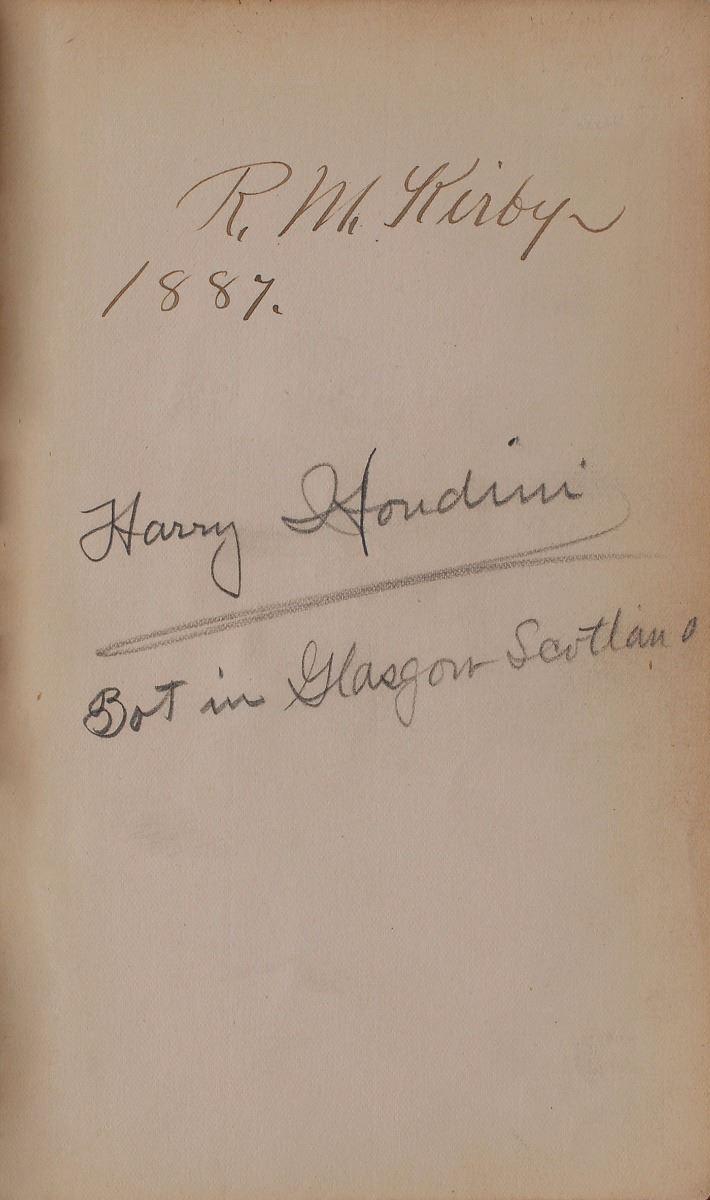 R. M. Kirby
1887.
Harry Houdini
Bot in Glasgow Scotland